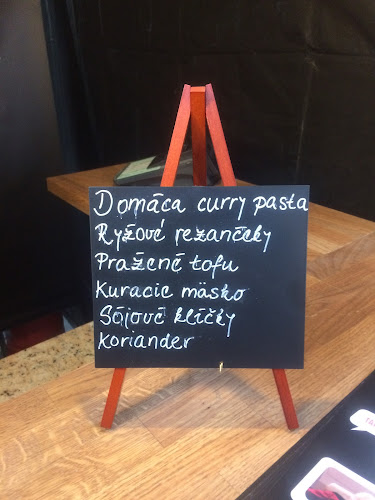 Domáca curry pasta
Ryžové rezančeky
Pražené tofu
Kuracie mäsko
Sójové klíčky
Koriander